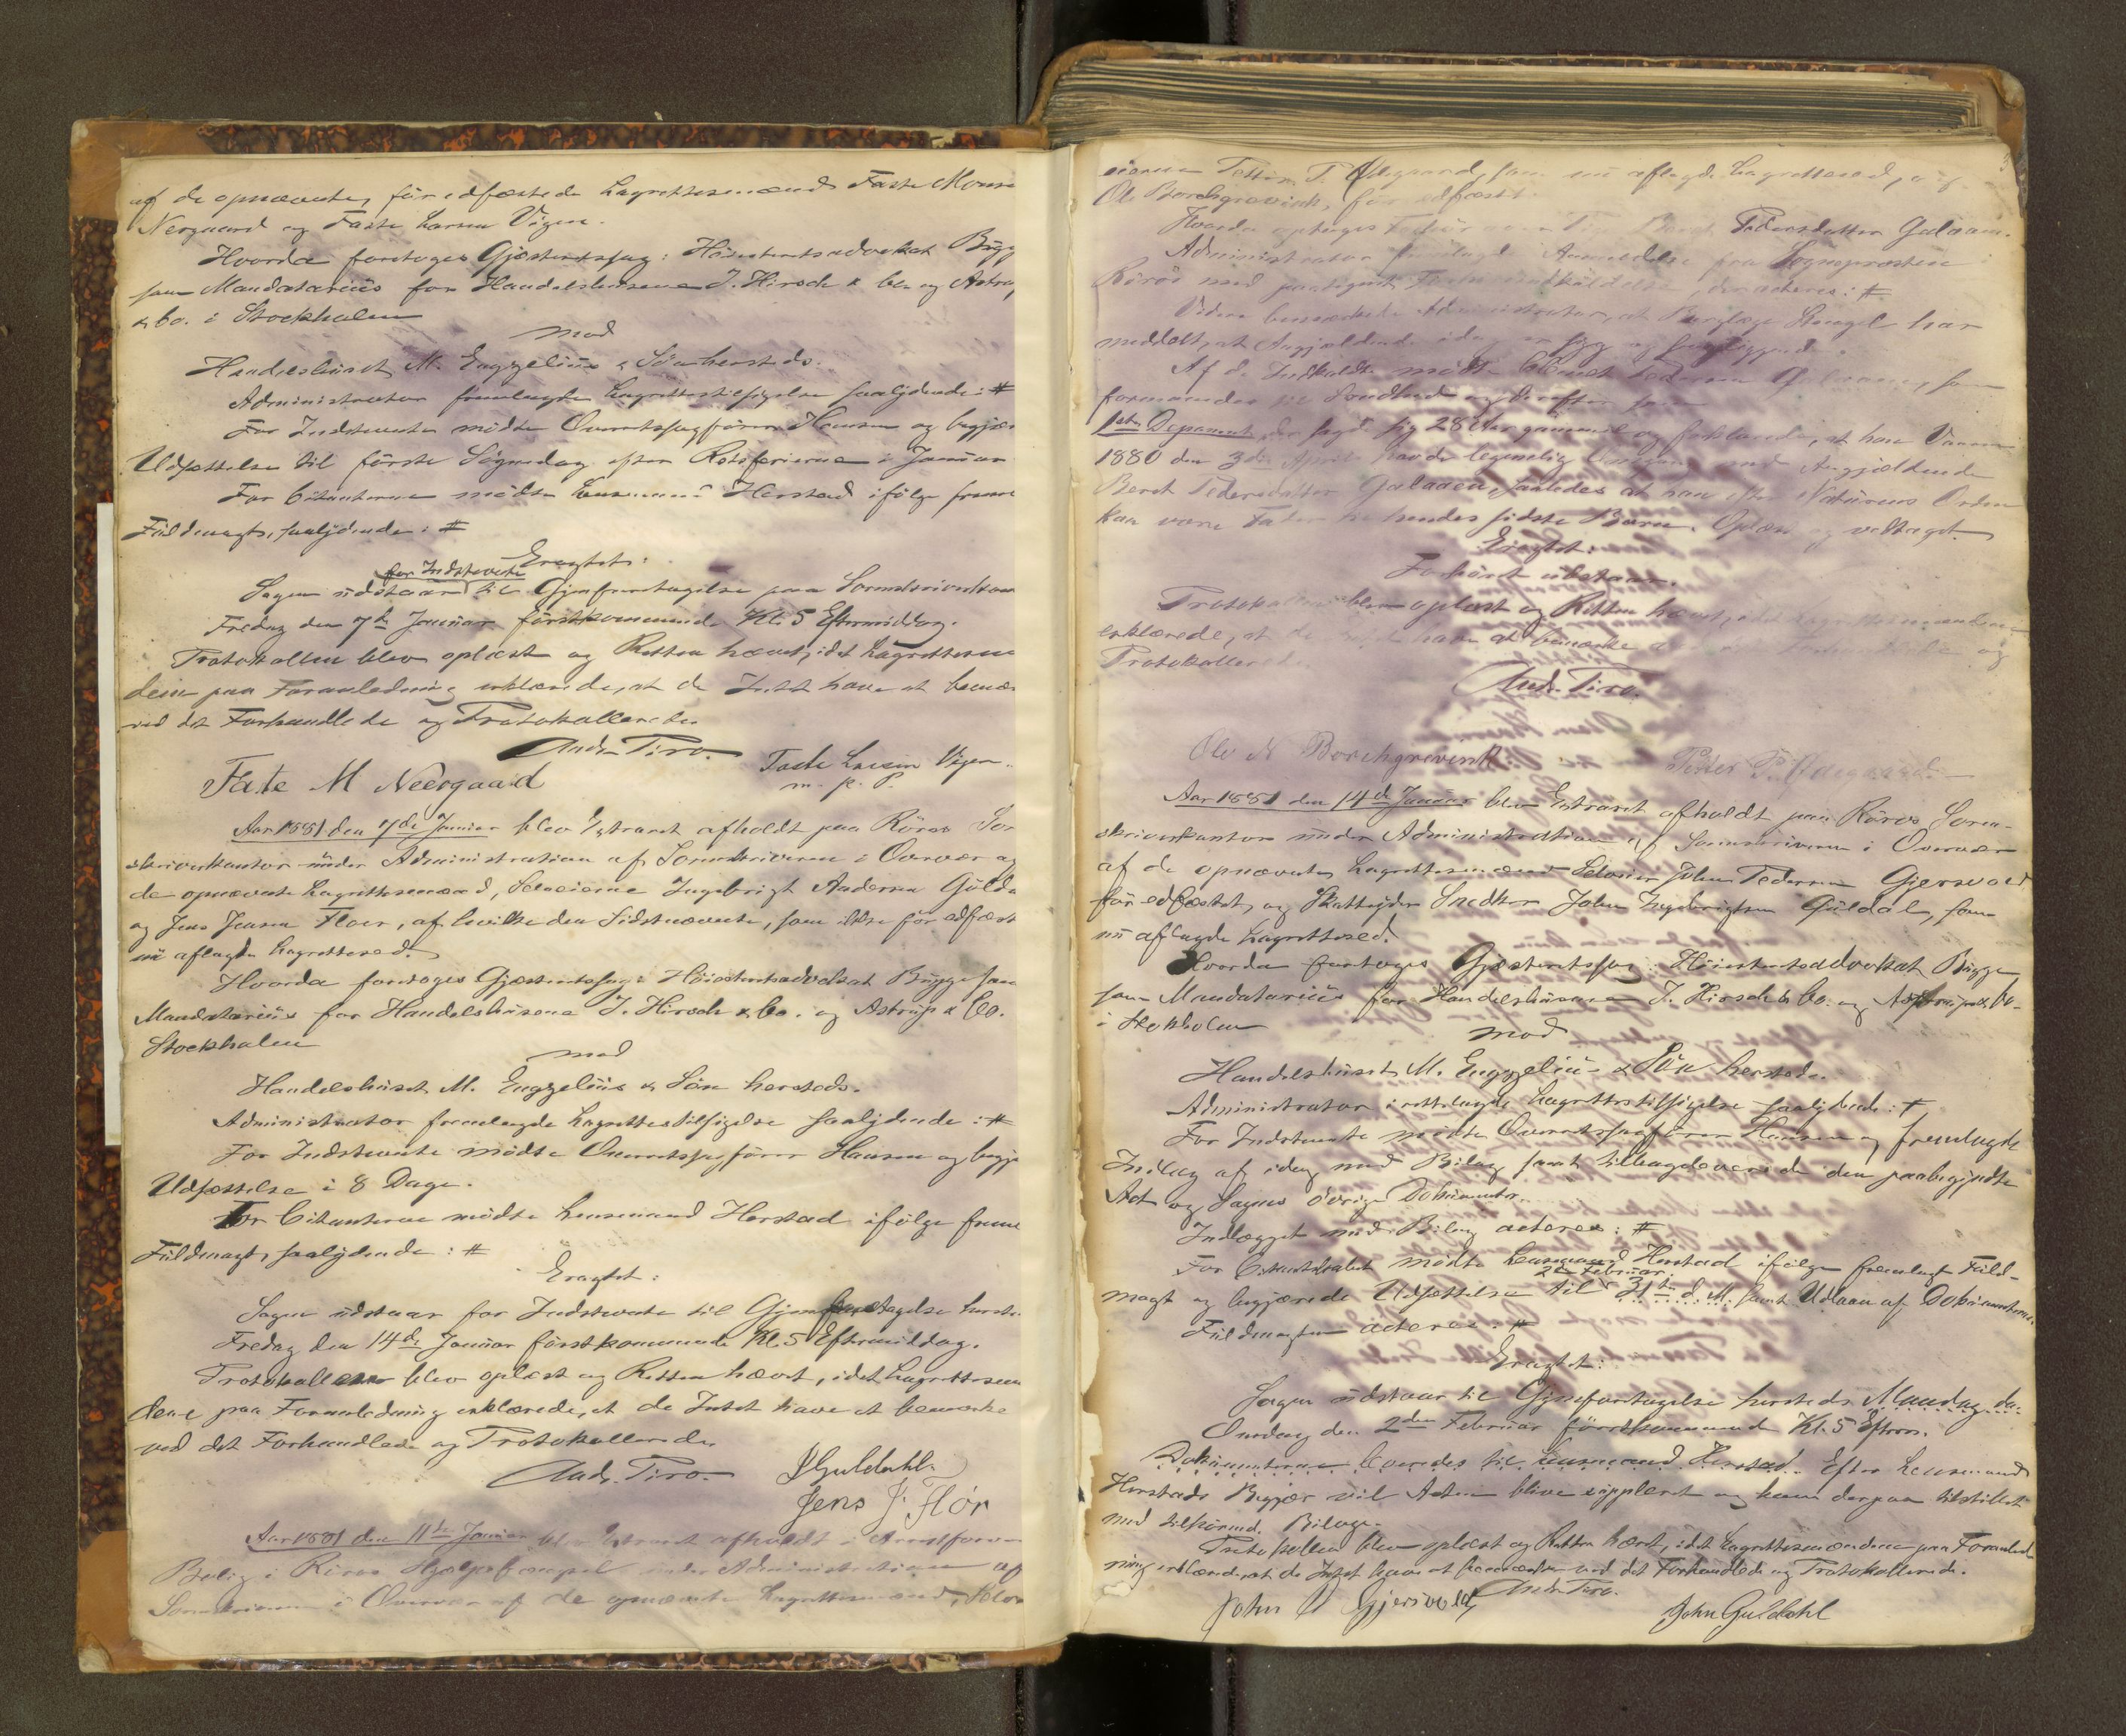 af de opnævnte, før edfæstede Lagrettesmænd Faste Mons
Neergaard og Faste Larsen Vigen.
Hvorda foretoges Gjæsteretssag: Høiesteretsadvokat Bugg
som Mandatarius for Handelshusene J. Hirsch & Co. og Astrup
& Co. i Stockholm
mod
Handelshuset M. Engzelius & Søn hersteds.
Administrator fremlagde Lagrettestilsigelse saalydende: #
For Indstevnte mødte Overretssagfører Hansen og begjær
Udsættelse til første Søgnedag efter Retsferierne i Januar
For Citanterne mødte Lensmand Herstad ifølge frem
Fuldmagt, saalydende: #
Eragtet:
for Indstevnte
Sagen udstaar til Gjenforetagelse paa Sorenskriverkon
Fredag den 7de Januar førstkommende Kl. 5 Eftermiddag.
Protokollen blev oplæst og Retten hævet, idet Lagrettesmæn
dene paa Foranledning erklærede, at de Intet have at bemær
ved det Forhandlede og Protokollerede.
Andr. Tiro. Faste Larsen Vigen
m. p. P.
Faste M Neergaard
Aar 1881 den 7de Januar blev Extraret afholdt paa Røros Sor
skriverkontor under Administration af Sorenskriveren i Overvær af
de opnævnte Lagrettesmænd, Selveierne Ingebrigt Andersen Gulda
og Jens Jensen Floer, af hvilke den Sidstnævnte, som ikke før edfæst
nu aflagde Lagrettesed.
Hvorda foretoges Gjæsteretssag: Høiesteretsadvokat Bugge som
Mandatarius for Handelshusene J. Hirsch & Co. og Astrup & Co.
Stockholm
mod
Handelshuset M. Engzelius & Søn hersteds.
Administrator fremlagde Lagrettestilsigelse saalydende: #
For Indstevnte mødte Overretssagfører Hansen og begj
Udsættelse i 8 Dage.
For Citanterne mødte Lensmand Herstad ifølge frem
Fuldmagt, saalydende: #
Eragtet:
Sagen udstaar for Indstevnte til Gjenforetagelse herste
Fredag den 14de Januar førstkommende Kl. 5 Eftermiddag.
Protokollen blev oplæst og Retten hævet, idet Lagrettesmæn
dene paa Foranledning erklærede, at de Intet have at bemærke
ved det Forhandlede og Protokollerede.
Andr. Tiro. JGuldahl.
Jens J. Flór
Aar 1881 den 11te Januar blev Extraret afholdt i
Bolig i Røros under Administration af
Sorenskriveren i Overvær af de opnævnte Lagrettesmænd, Selv
eierne Petter P. Ødegaard, som nu aflagde Lagrettesed, og
Ole Borchgrevink, før edfæstet.
Hvorda optoges Forhør Berit Pedersdatter Galaaen.
Administrator fremlagde Anmeldelse fra Sognepræsten i
Røros med paategnet , der acteres: #
Videre bemærkede Administrator, at Stengel har
meddelt, at Angjældende
Af de Indkaldte mødte Pedersen Galaaen, som
formanedes til Sandhed og
1ste Deponent, der sagde sig 28 Aar gammel og forklarede, at han Vaaren
1880 den 3die April havde legemlig Omgang med Angjældende
Berit Pedersdatter Galaaen, saaledes at han efter Naturens Orden
kan være Fader til hendes sidste Barn. Oplæst og vedtaget.
Eragtet:
Forhøret udstaar.
Protokollen blev oplæst og Retten hævet, idet Lagrettesmændene
erklærede, at de Intet have at bemærke Forhandlede og
Protokollerede.
Andr. Tiro.
Ole N Borchgrevink Petter P. Ødegaard
Aar 1881 den 14de Januar blev Extraret afholdt paa Røros Soren-
skriverkontor under Administration af Sorenskriveren i Overvær
af de opnævnte Lagrettesmænd Selveier John Pedersen Gjersvold
før edfæstet, og Skatteyder Snedker John Ingebrigtsen Guldal, som
nu aflagde Lagrettesed.
Hvorda foretoges Gjæsteretssag: Høiesteretsadvokat Bugge
som Mandatarius for Handelshusene J. Hirsch & Co. og Astrup & Co.
i Stokholm
mod
Handelshuset M. Engzelius & Søn hersteds.
Administrator irettelagde Lagrettestilsigelse saalydende: #
For Indstevnte mødte Overretssagfører Hansen og fremlagde
Indlæg af idag med Bilag samt tilbageleverede den paabegyndte
Act og Sagens øvrige Dokumenter.
Indlægget med Bilag acteres: #
For Citantskabet mødte Lensmand Herstad ifølge fremlagt Fuld-
2de Februar
magt og begjærede Udsættelse til 31te d. M. samt Udlaan af Dokumenterne.
Fuldmagten acteres: #
Eragtet:
Sagen udstaar til Gjenforetagelse hersteds Mandag den
Onsdag den 2den Februar førstkommende Kl. 5 Efterm.
Dokumenterne leveredes til Lensmand Herstad. Efter Lensmand
Herstads Begjær vil Acten blive suppleret og ham derpaa tilstillet
med tilhørende Bilage.
Protokollen blev oplæst og Retten hævet, idet Lagrettesmændene paa Foranled-
ning erklærede, at de Intet have at bemærke ved det Forhandlede og Protokollerede.
Andr. Tiro.
John P Gjersvold John Guldahl